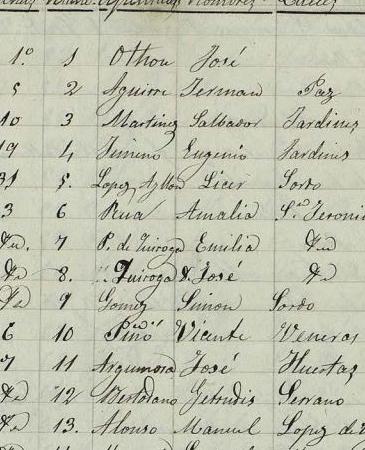 1º 1 Othon José
5 2 Aguirre German Paz
10 3 Martinez Salbador Jardines
19 4 Jimeno Eugenio Jardines
31 5. Lopez Ayllon Licer Sordo
3 6 Rua Amalia S.n Jeroni
Id. 7 P. de Quiroga Emilia Id
Id 8. " Quiroga José Id
Id 9 Gomez Simon Sordo
6 10 Pino Vicente Veneras
7 11 José Huertas
Id 12 Bertodano Getrudis Serrano
Id 13. Alonso Manuel Lopez de